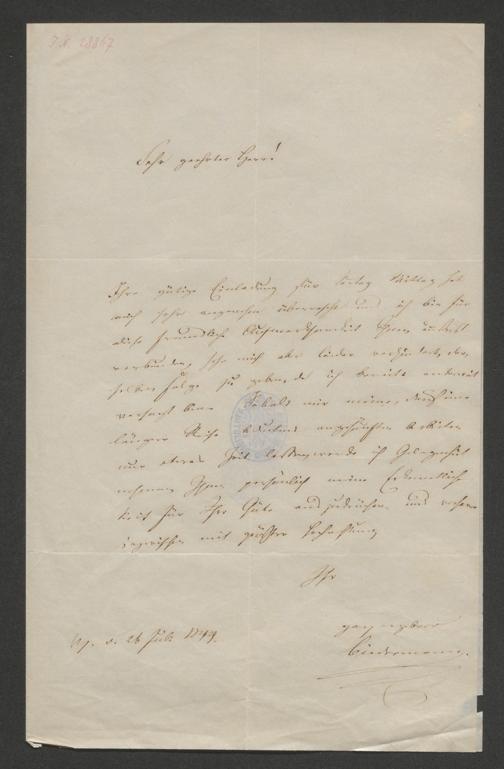 I.N. 28867
Sehr geehrter Herr!
Ihre gütige Einladung für Mittag hat
mich sehr angenehm überrascht und ich bin für
diese freundliche Aufmerksamkeit Ihnen
verbunden, sehe mich aber leider verhindert, der-
selben Folge zu geben, da ich bereits
versagt bin. Sobald mir meine
längere Reise Arbeiten
nur etwas Zeit lassen, werde ich Gelegenheit
nehmen Ihnen persönlich meine Erkenntlich
keit für Ihre Güte auszudrücken und
inzwischen mit Hochachtung
Ihr
ganz ergebener
Biedermann.
d. 26 Juli 1844.